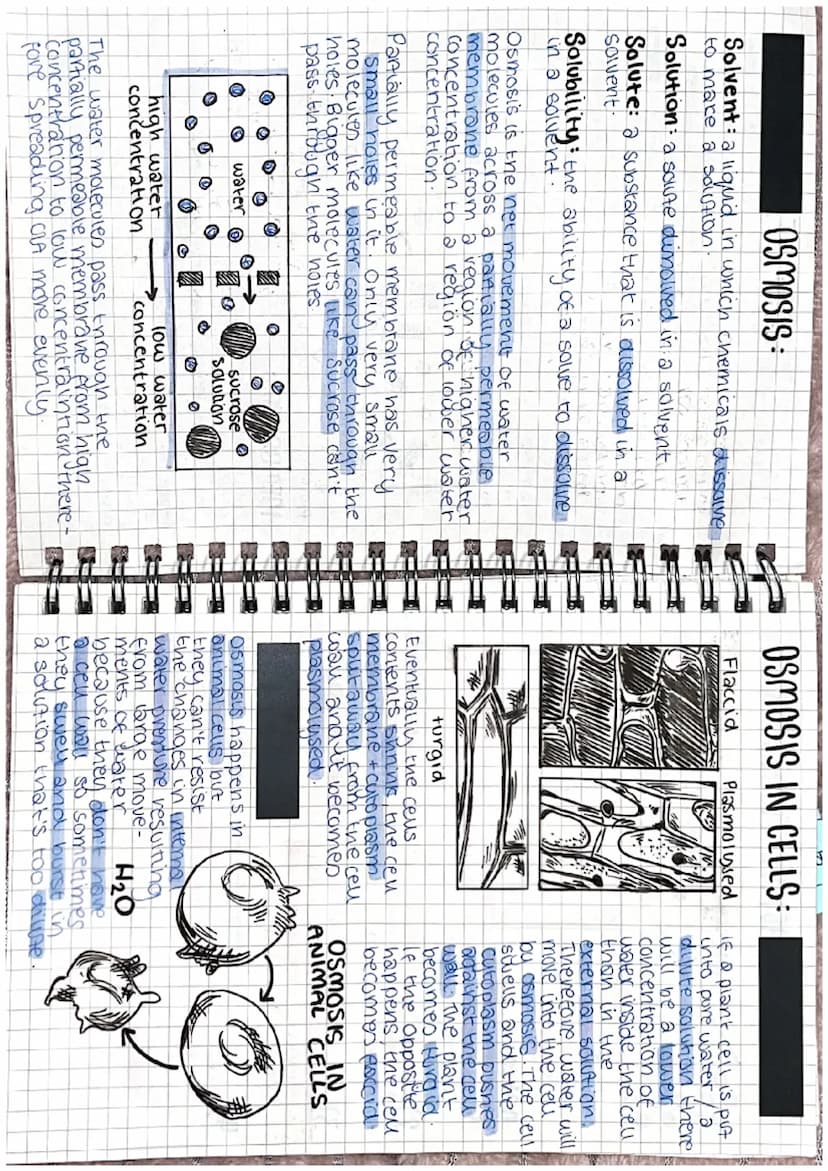 OSMOSIS:
Solvent: a liquid in which chemicals dissolve
to make a solution.
Solution: a solute dissolved in a solvent
Solute: a substance that is dissolved in a
solvent.
Solubility: the ability of a solve to dissolve
in a solvent.
Osmosis is the net movement of water
molecules across a partially permeable
membrane from a region of higher water
concentration to a region of lower water
concentration.
Partially permeable membrane has very
small holes in it. Only very small
molecules like water can pass through the
holes Bigger molecules like sucrose can't
pass through the holes
water
sucrose
solution
high water
concentration
low water
concentration
The water molecules pass through the
partially permeable membrane from high
concentration to low concentraintion there-
fore spreading out more evenly.
OSMOSIS IN CELLS:
Flaccid
Plasmolysed
turgid
If a plant cell is put
into pure water / a
dilute solution there
will be a lower
concentration of
water inside the cell
than in the
external solution.
Therefore water will
move into the cell
by osmosis. The cell
swells and the
cytoplasm pushes
against the cell
wall. The plant
becomes turgid.
If the opposite
happens, the cell
becomes flaccid
Eventually the cells
contents shrink, the cell
membrane + cytoplasm
split away from the cell
wall and it becomes
plasmolysed.
Osmosis happens in
animal cells but
they can't resist
the changes in internal
water pressure resulting
from large move-
ments of water
because they don't have
a cell wall so sometimes
they swell and burst in
a solution that's too dilute.
OSMOSIS IN
ANIMAL CELLS
H₂O